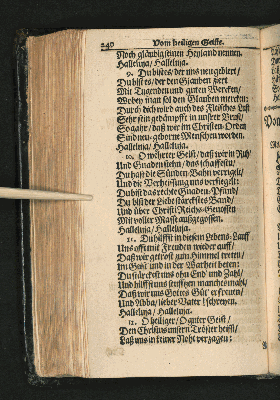 240 Vom heiligen Geiste.
Noch gläubig seinen Heyland nennen.
Halleluja/ Halleluja.
9. Du bists/ der uns neu gebiert/
Du bist es/ der den Glauben ziert
Mit Tugenden und guten Wercken/
Wobey man sol den Glauben mercken:
Durch dich wird auch des Fleisches Lust
Sehr fein gedämpfft in unser Brust/
So gahr/ daß wir im Christen-Orden
Sind neu-geborne Menschen worden.
Halleluja/ Halleluja.
10. O wehrter Geist/ daß wir in Ruh/
Und Gnaden stehn/ das schaffest du/
Du hast die Sünden-Bahn verriegelt/
Und die Verheissung uns versiegelt:
Du bist das rechte Gnaden-Pfand/
Du bist der Liebe stärckstes Band/
Und über Christi Reichs-Genossen
Mit voller Masse außgegossen.
Halleluja/ Halleluja.
11. Du hilffst in diesem Lebens-Lauff
Uns offt mit Freuden wieder auff/
Daß wir getrost zum Himmel treten/
Im Geist und in der Warheit beten:
Du stärckest uns ohn End' und Zahl/
Und hilffst uns seufftzen manches mahl/
Daß wir uns Gottes Güt' erfreuten/
Und Abba/ lieber Vater! schreyen.
Halleluja/ Halleluja.
12. O heiliger/ O guter Geist/
Den Christus unsern Tröster heist/
Laß uns in keiner Noht verzagen: